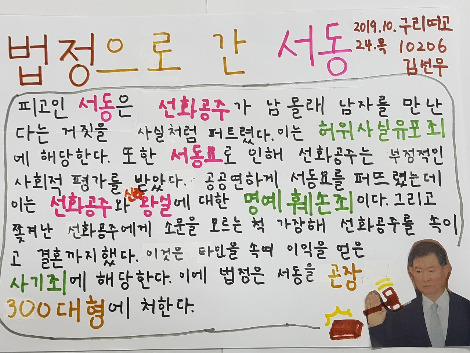 법정으로 간 서동
2019.10. 구리여고
24.목 10206
김선우
피고인 서동은 선화공주가 남 몰래 남자를 만난
다는 거짓을 사실처럼 퍼트렸다. 이는 허위사실유포죄
에 해당한다. 또한 서동요로 인해 선화공주는 부정적인
사회적 평가를 받았다. 공공연하게 서동요를 퍼뜨렸는데
이는 선화공주와 신라왕실에 대한 명예훼손죄이다. 그리고
쫓겨난 선화공주에게 소문을 모르는 척 가장해 선화공주를 속이
고 결혼까지했다. 이것은 타인을 속여 이익을 얻은
사기죄에 해당한다. 이에 법정은 서동을 곤장
300대형에 처한다.